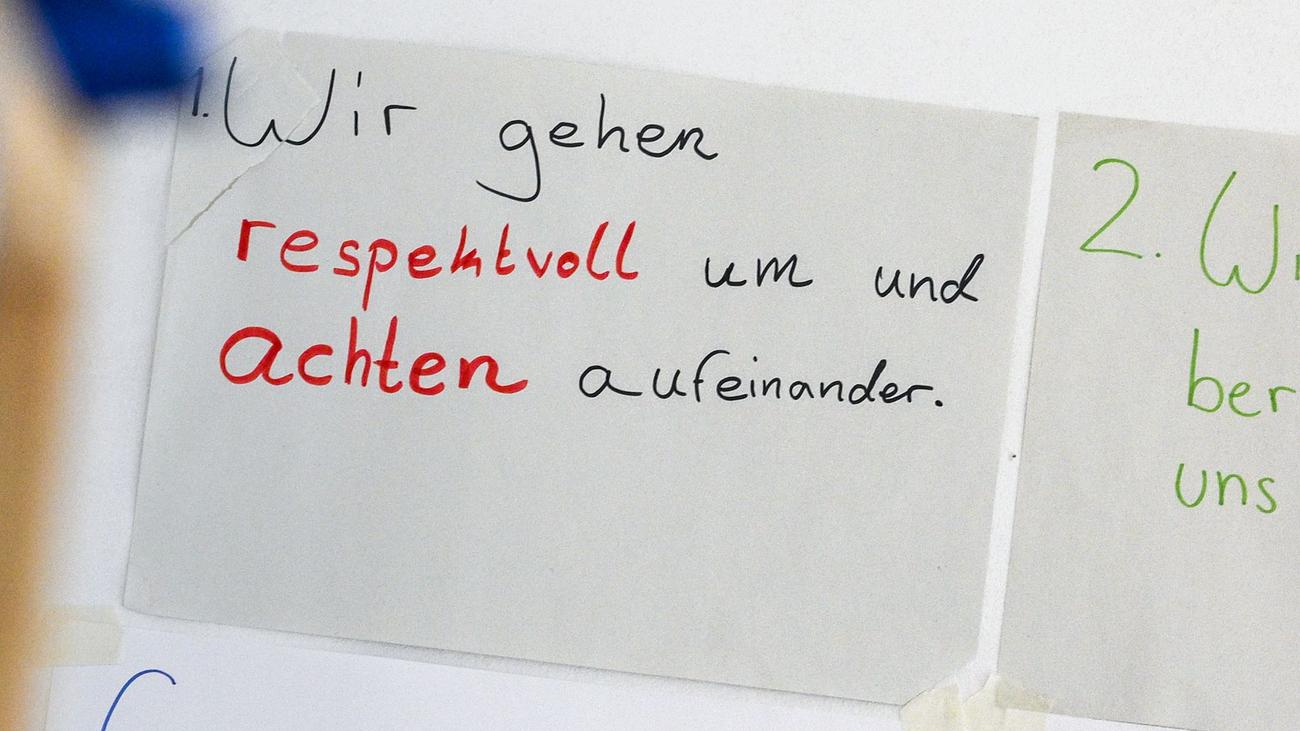 1. Wir gehen
respektvoll um und
achten aufeinander.
2.
uns